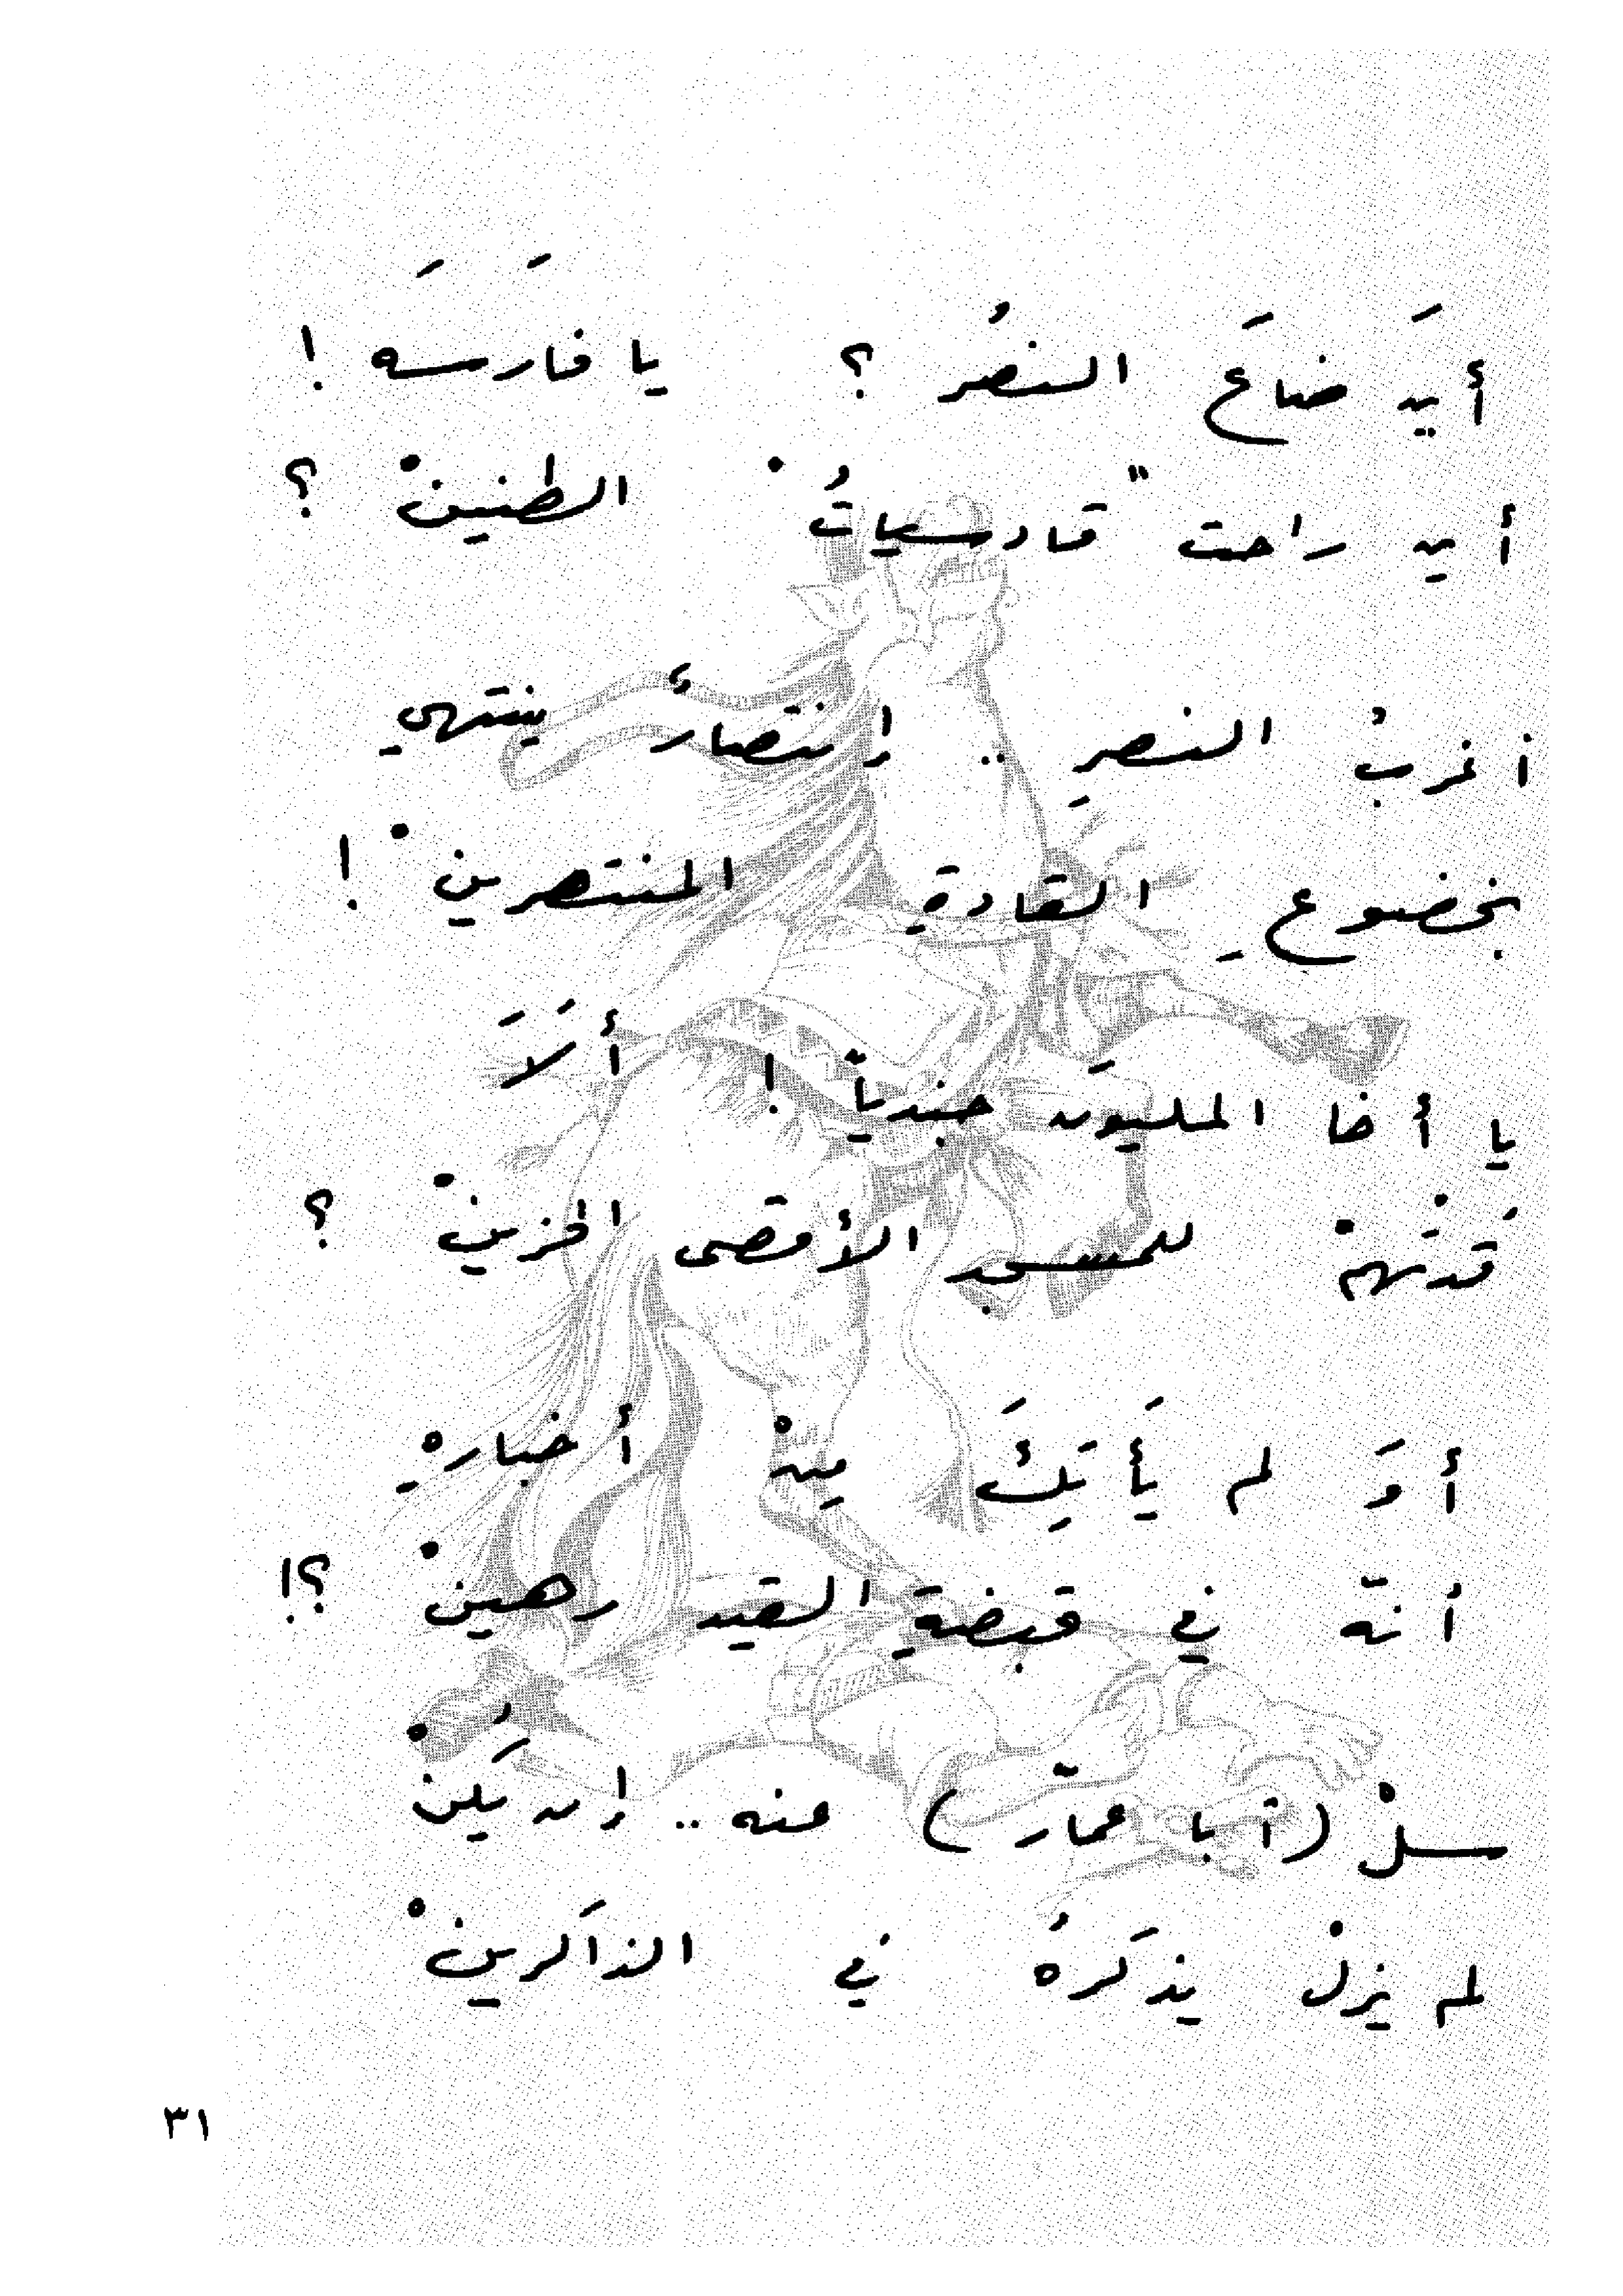 أينَ ضاعَ النصرُ ؟ يا فارسَهَ !
أين راحت "قادسياتُ" الطنينْ ؟
أغربُ النصرِ .. إنتصارٌ ينتهي
بخضوعِ القادةِ المنتصرينْ !
يا أخا المليونَ جندياً ! ألاَ
قُدتَهمْ للمسجد الأقصى الحزينْ ؟
أوَ لم يَأتِكَ مِنْ أخبارهِ
أنّه في قبضةِ القيد رهينْ ؟!
سلْ (أبا عمّار) عنه .. إن يَكُنْ
لم يزلْ يذكَرُهُ في الذاكَرينْ
٣١